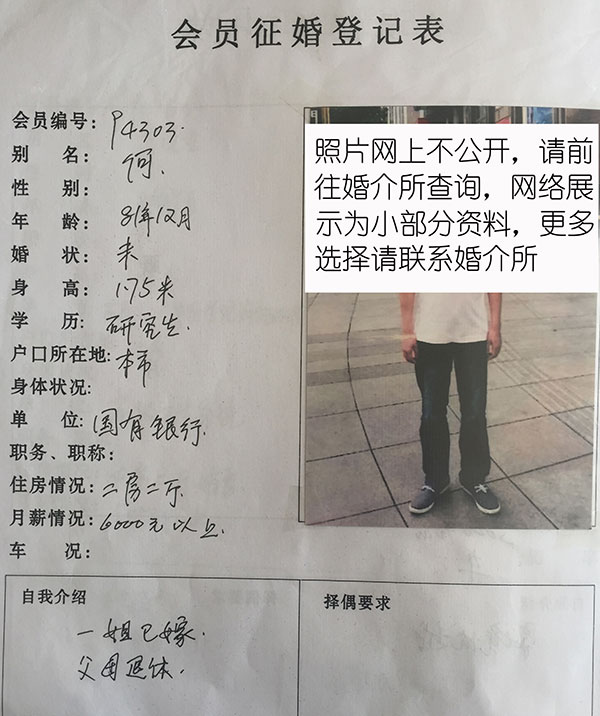 会员征婚登记表
会员编号: P4303.
别 名: 何.
性 别:
年 龄: 81年12月
婚 状: 未
身 高: 1.75米
学 历: 研究生.
户口所在地: 本市
身体状况:
单 位: 国有银行.
职务、职称:
住房情况: 二房二厅
月薪情况: 6000元以上.
车 况:
照片网上不公开，请前
往婚介所查询，网络展
示为小部分资料，更多
选择请联系婚介所
自我介绍
一姐已嫁.
父母退休.
择偶要求